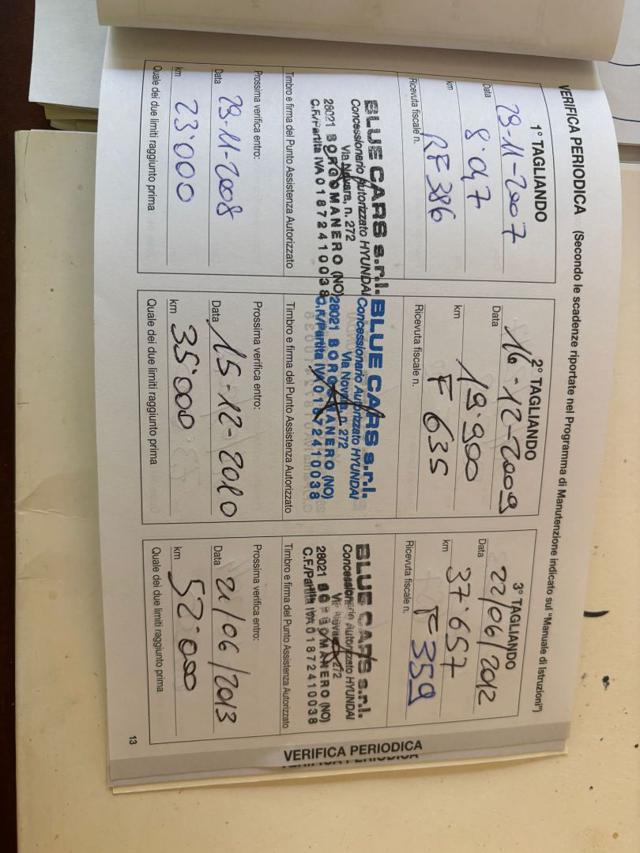 VERIFICA PERIODICA (Secondo le scadenze riportate nel Programma di Manutenzione indicato sul "Manuale di Istruzioni")
1° TAGLIANDO
Data 29-11-2007
km 8.047
Ricevuta fiscale n. RF 386
BLUE CARS s.r.l.
Concessionario Autorizzato HYUNDAI
Via Novara, n. 272
28021 BORGOMANERO (NO)
C.F./Partita IVA 01872410038
Timbro e firma del Punto Assistenza Autorizzato
Prossima verifica entro:
Data 29-11-2008
km 23.000
Quale dei due limiti raggiunto prima
2° TAGLIANDO
Data 16-12-2009
km 19.900
Ricevuta fiscale n. F 635
BLUE CARS s.r.l.
Concessionario Autorizzato HYUNDAI
Via Novara, n. 272
28021 BORGOMANERO (NO)
C.F./Partita IVA 01872410038
Timbro e firma del Punto Assistenza Autorizzato
Prossima verifica entro:
Data 15-12-2010
km 35.000
Quale dei due limiti raggiunto prima
3° TAGLIANDO
Data 22/06/2012
km 37.657
Ricevuta fiscale n. F 359
BLUE CARS s.r.l.
Concessionario Autorizzato HYUNDAI
28021 BORGOMANERO (NO)
C.F./Partita IVA 01872410038
Timbro e firma del Punto Assistenza Autorizzato
Prossima verifica entro:
Data 21/06/2013
km 52.000
Quale dei due limiti raggiunto prima
VERIFICA PERIODICA
VERIFICA PERIODICA
13